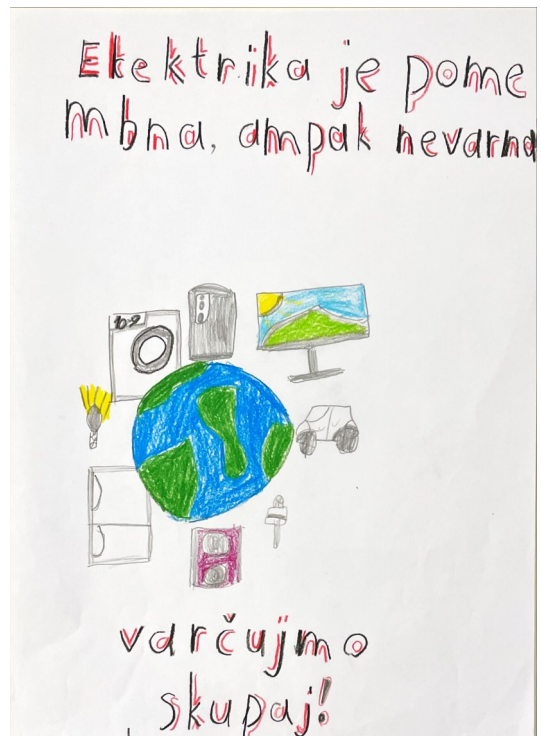 Elektrika je pome
mbna, ampak nevarna
varčujmo
skupaj!